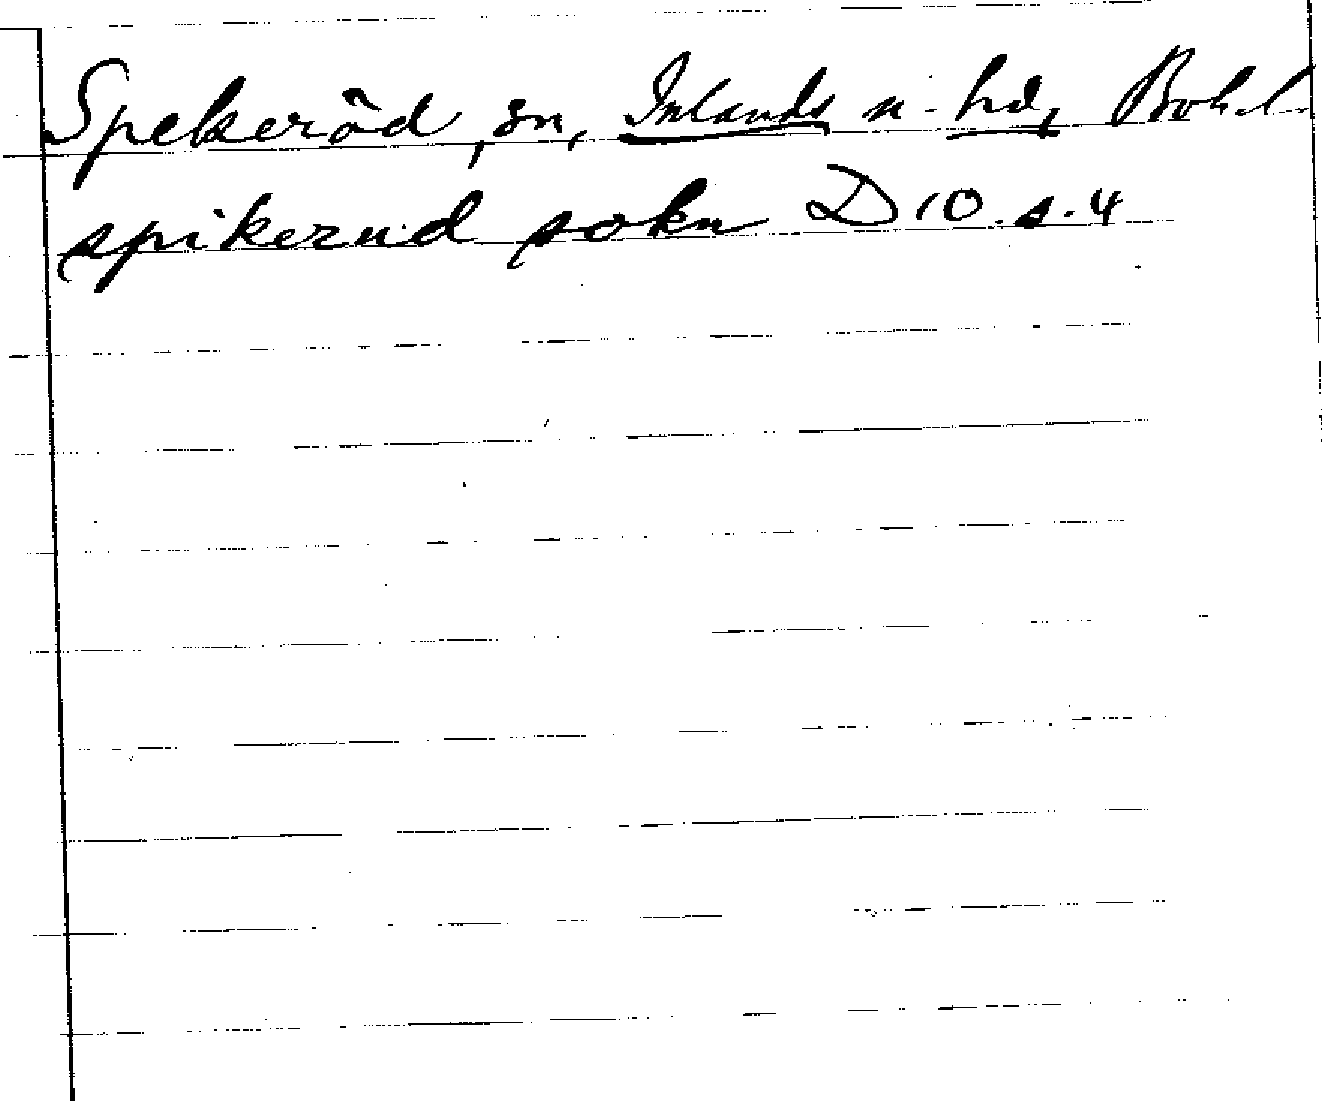 Spekeröd, sn, Inlands n. hd, Bohl.
spikerud sokn D 10 s. 4